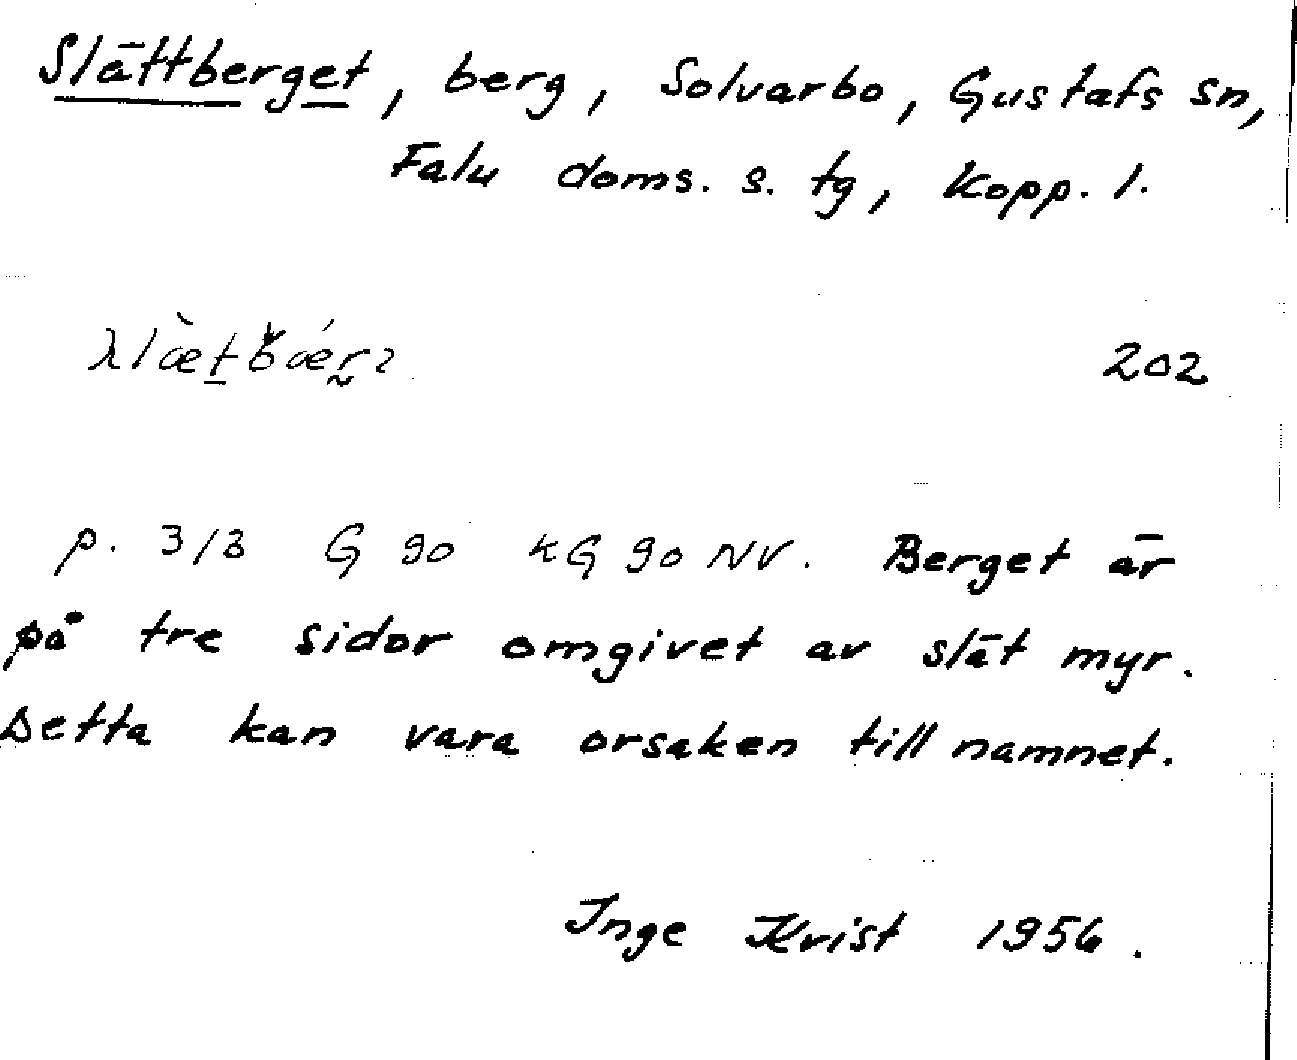 Slättberget, berg, Solvarbo, Gustafs sn,
Falu doms. s. tg, Kopp. l.
202
p. 3/3 G 90 kG 90 NV. Berget är
på tre sidor omgivet av slät myr.
Detta kan vara orsaken till namnet.
Inge Krist 1956.